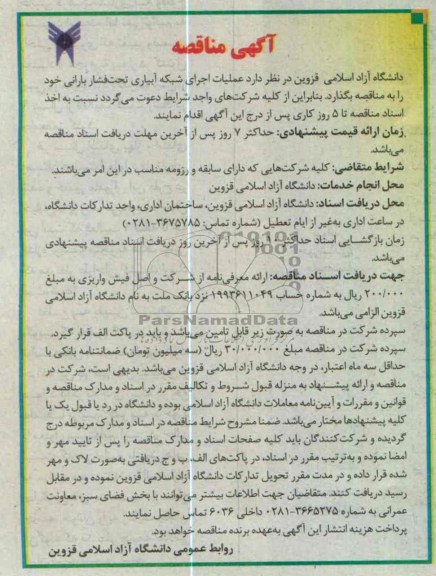 آگهی مناقصه
دانشگاه آزاد اسلامی قزوین در نظر دارد عملیات اجرای شبکه آبیاری تحت‌فشار بارانی خود
را به مناقصه بگذارد. بنابراین از کلیه شرکت‌های واجد شرایط دعوت می‌گردد نسبت به اخذ
اسناد مناقصه تا ۵ روز کاری پس از درج این آگهی اقدام نمایند.
زمان ارائه قیمت پیشنهادی: حداکثر ۷ روز پس از آخرین مهلت دریافت اسناد مناقصه
می‌باشد.
شرایط متقاضی: کلیه شرکت‌هایی که دارای سابقه و رزومه مناسب در این امر می‌باشند.
محل انجام خدمات: دانشگاه آزاد اسلامی قزوین
محل دریافت اسناد: دانشگاه آزاد اسلامی قزوین، ساختمان اداری، واحد تدارکات دانشگاه،
در ساعات اداری به‌غیر از ایام تعطیل (شماره تماس: ۳۶۷۵۷۸۵-۰۲۸۱)
زمان بازگشایی اسناد حداکثر روز پس از آخرین روز دریافت اسناد مناقصه پیشنهادی
می‌باشد.
جهت دریافت اسناد مناقصه: ارائه معرفی‌نامه از شرکت و اصل فیش واریزی به مبلغ
۲۰۰/۰۰۰ ریال به شماره حساب ۱۹۹۳۶۱۱۰۴۹ نزد بانک ملت به نام دانشگاه آزاد اسلامی
قزوین الزامی می‌باشد.
ParsNamadData
سپرده شرکت در مناقصه به صورت زیر قابل تامین می‌باشد و باید در پاکت الف قرار گیرد.
سپرده شرکت در مناقصه مبلغ ۳۰/۰۰۰/۰۰۰ ریال (سه میلیون تومان) ضمانتنامه بانکی با
حداقل سه ماه اعتبار، در وجه دانشگاه آزاد اسلامی قزوین می‌باشد. بدیهی است، شرکت در
مناقصه و ارائه پیشنهاد به منزله قبول شروط و تکالیف مقرر در اسناد و مدارک مناقصه و
قوانین و مقررات و آیین‌نامه معاملات دانشگاه آزاد اسلامی بوده و دانشگاه در رد یا قبول یک یا
کلیه پیشنهادها مختار می‌باشد. ضمنا مشروح شرایط مناقصه در اسناد و مدارک مربوطه درج
گردیده و شرکت‌کنندگان باید کلیه صفحات اسناد و مدارک مناقصه را پس از تایید مهر و
امضا نموده و به‌ترتیب مقرر در اسناد، در پاکت‌های الف، ب و ج دریافتی به‌صورت لاک و مهر
شده قرار داده و در مدت مقرر تحویل تدارکات دانشگاه آزاد اسلامی قزوین نموده و در مقابل
رسید دریافت کنند. متقاضیان جهت اطلاعات بیشتر می‌توانند با بخش فضای سبز، معاونت
عمرانی به شماره ۳۶۶۵۲۷۵-۰۲۸۱ داخلی ۶۰۳۶ تماس حاصل نمایند.
پرداخت هزینه انتشار این آگهی به‌عهده برنده مناقصه خواهد بود.
روابط عمومی دانشگاه آزاد اسلامی قزوین